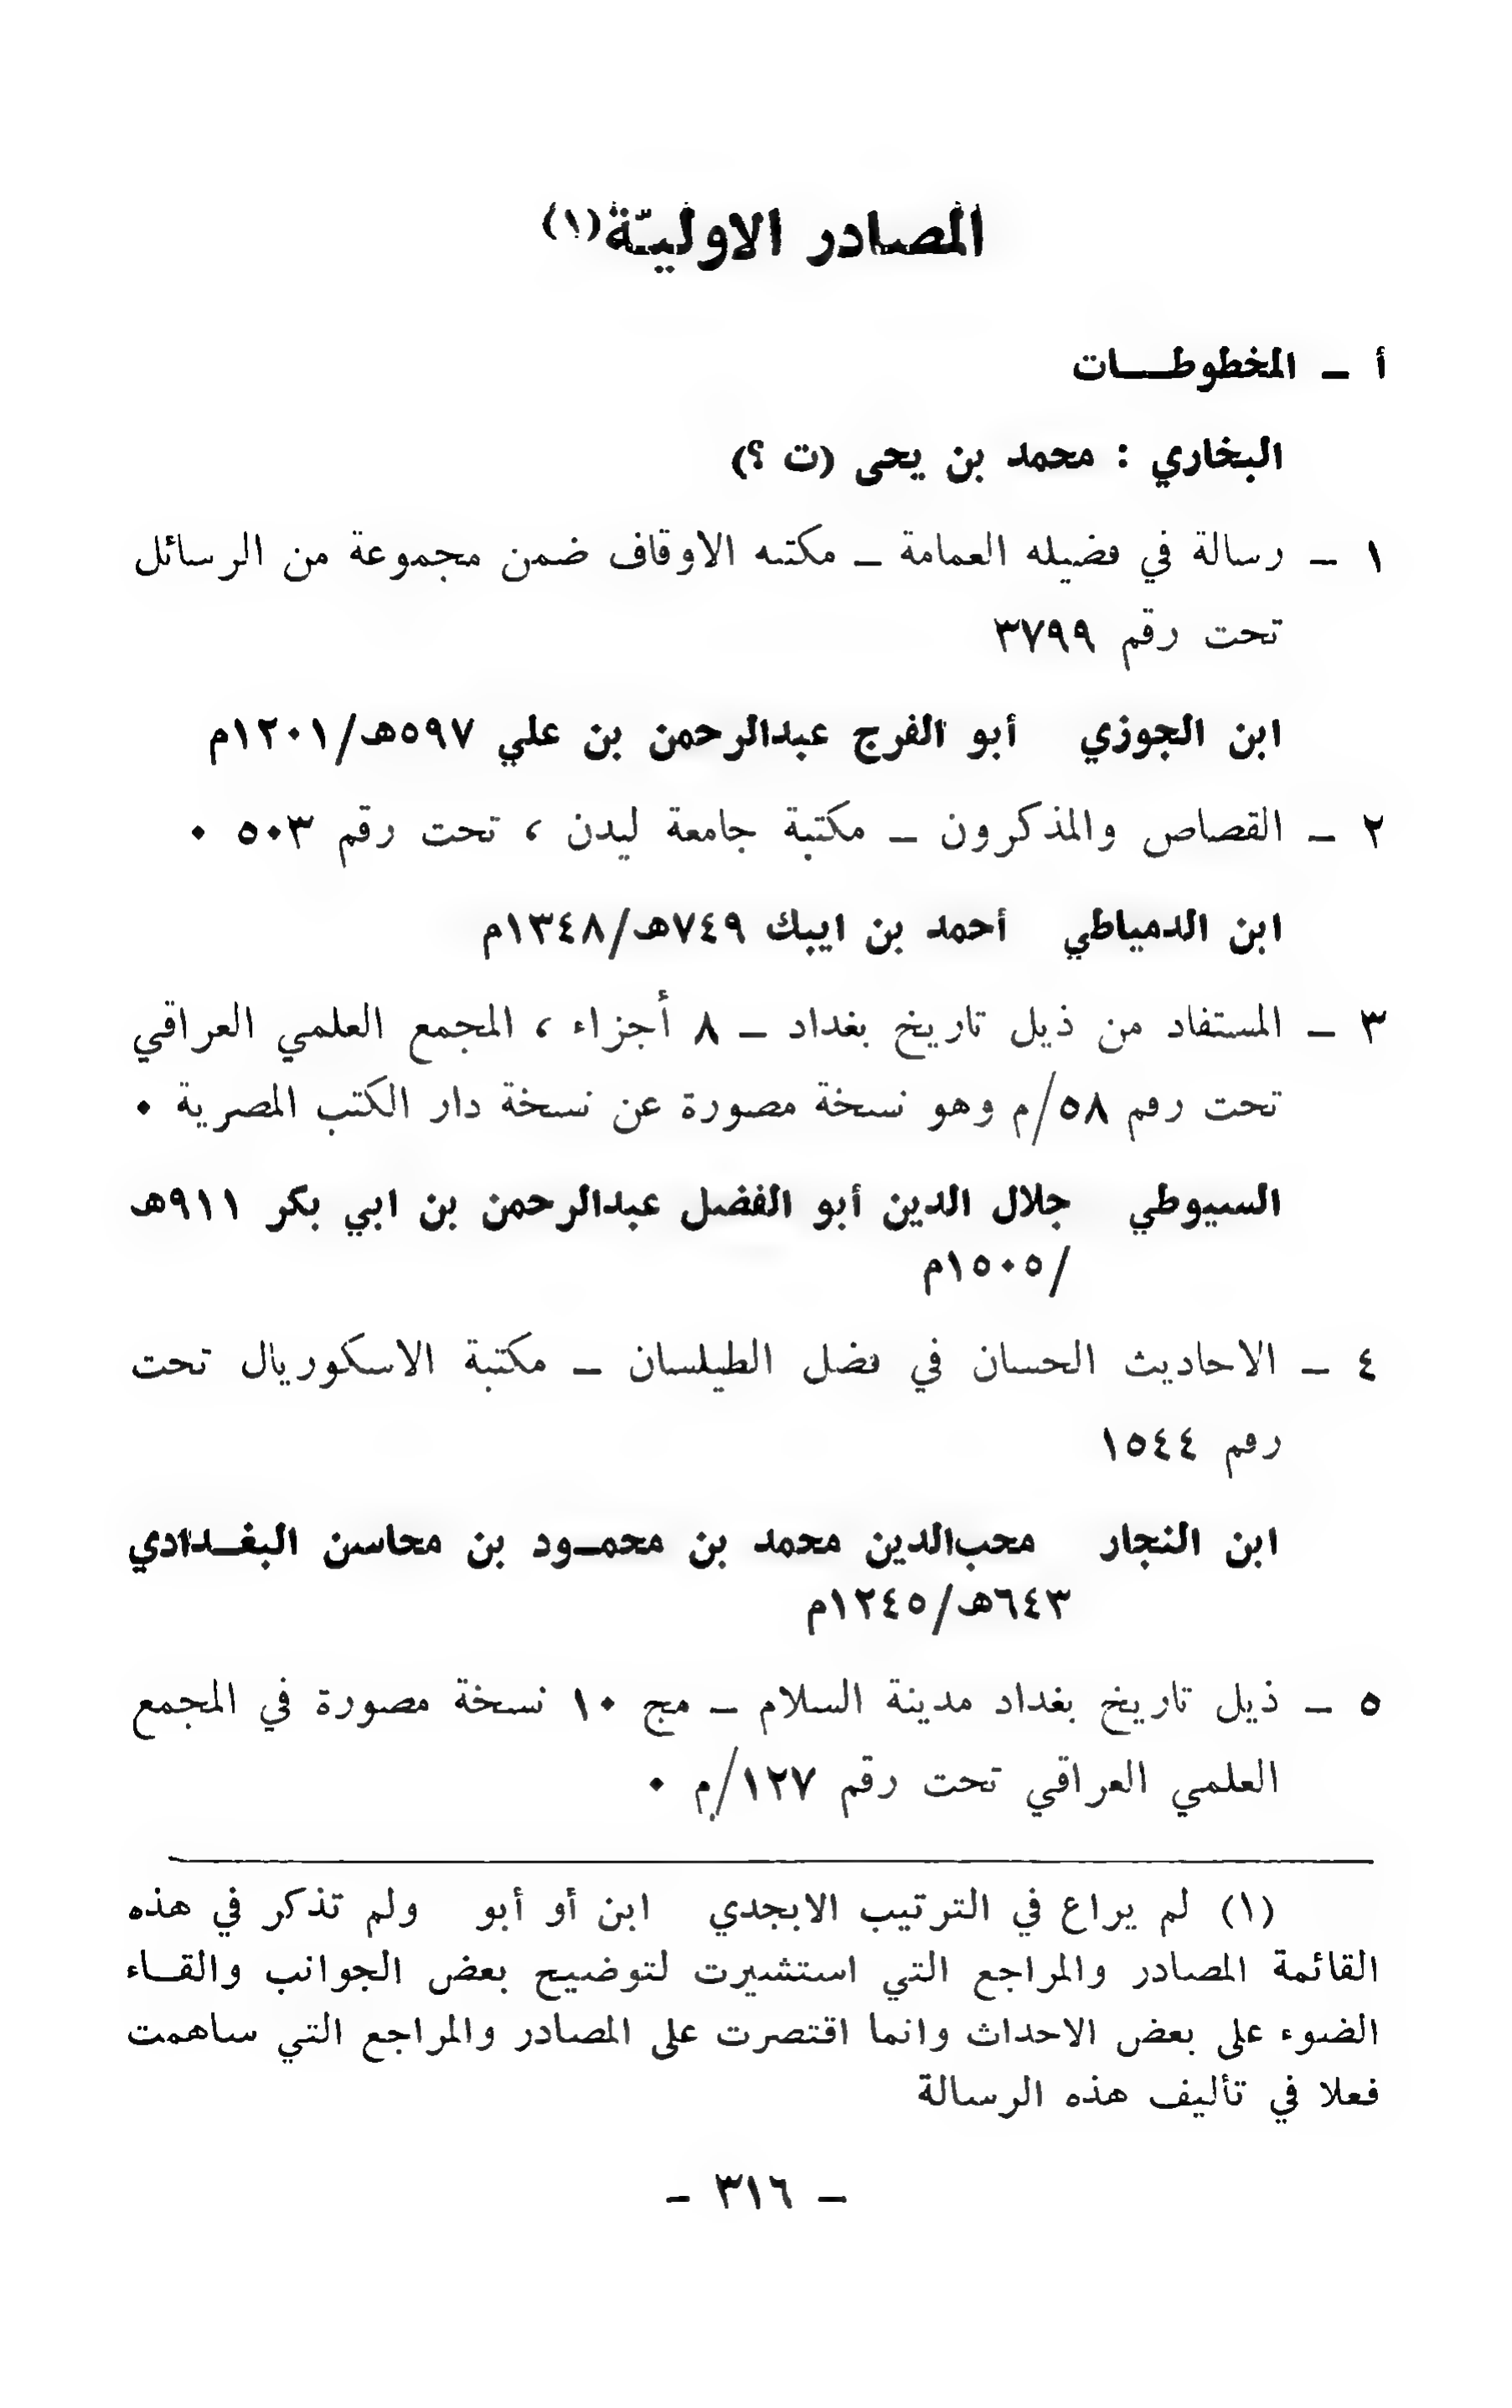 المصادر الاوليّة(١)
أ ــ المخطوطـــات
البخاري : محمد بن يحى (ت ؟)
١ ــ رسالة في فضيله العمامة ــ مكتبه الاوقاف ضمن مجموعة من الرسائل
تحت رقم ٣٧٩٩
ابن الجوزي أبو الفرج عبدالرحمن بن علي ٥٩٧هـ/١٢٠١م
٢ ــ القصاص والمذكرون ــ مكتبة جامعة ليدن ، تحت رقم ٥٠٣ ٠
ابن الدمياطي أحمد بن ايبك ٧٤٩هـ/١٣٤٨م
٣ ــ المستفاد من ذيل تاريخ بغداد ــ ٨ أجزاء ، المجمع العلمي العراقي
تحت رقم ٥٨/م وهو نسخة مصورة عن نسخة دار الكتب المصرية ٠
السيوطي جلال الدين أبو الفضل عبدالرحمن بن ابي بكر ٩١١هـ
/١٥٠٥م
٤ ــ الاحاديث الحسان في فضل الطيلسان ــ مكتبة الاسكوريال تحت
رقم ١٥٤٤
ابن النجار محب‌الدين محمد بن محمـود بن محاسن البغـدادي
٦٤٣هـ/١٢٤٥م
٥ ــ ذيل تاريخ بغداد مدينة السلام ــ مج ١٠ نسخة مصورة في المجمع
العلمي العراقي تحت رقم ١٢٧/م ٠
(١) لم يراع في الترتيب الابجدي ابن أو أبو ولم تذكر في هذه
القائمة المصادر والمراجع التي استشيرت لتوضيح بعض الجوانب والقـاء
الضوء على بعض الاحداث وانما اقتصرت على المصادر والمراجع التي ساهمت
فعلا في تأليف هذه الرسالة
ــ ٣١٦ ــ